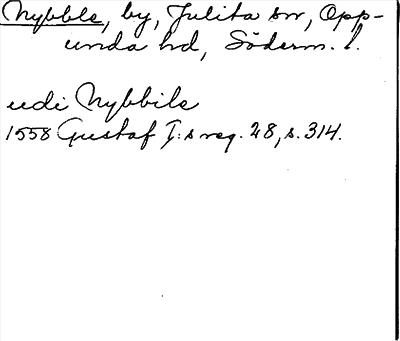 Nybble, by, Julita sn, Opp-
unda hd, Söderm. l.
udi Nybbile
1558 Gustaf I:s reg. 28, s. 314.